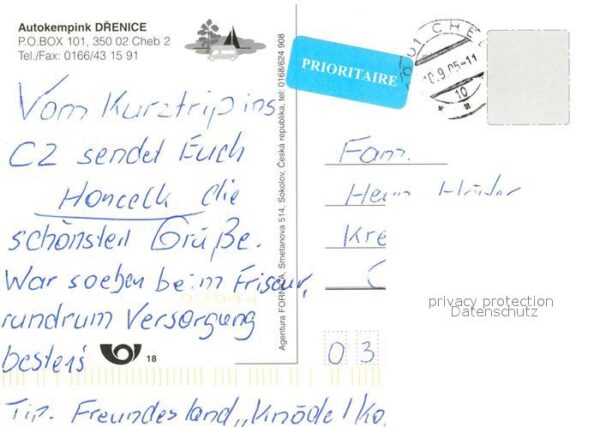 Autokempink DŘENICE
P.O.BOX 101, 350 02 Cheb 2
Tel./Fax: 0166/43 15 91
PRIORITAIRE
01 CHE
10.9.05-11
10
Vom Kurztrip ins
CZ sendet Euch
die
schönsten Grüße.
War soeben beim Friseur,
rundrum Versorgung
bestens
18
Tip. Freundesland „Knödel
Agentura Smetanova 514, Sokolov, Česká republika, tel: 0168/624 908
Fam.
Kre
privacy protection
Datenschutz
0 3